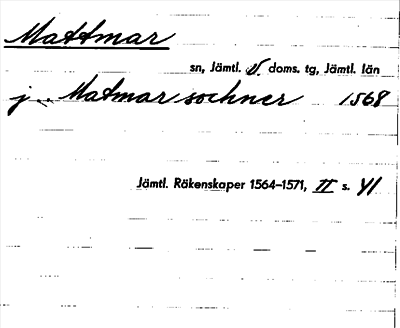 Mattmar
sn, Jämtl. v doms. tg, Jämtl. län
j .. Matmar sochner 1568
Jämtl. Räkenskaper 1564–1571, II s. 41